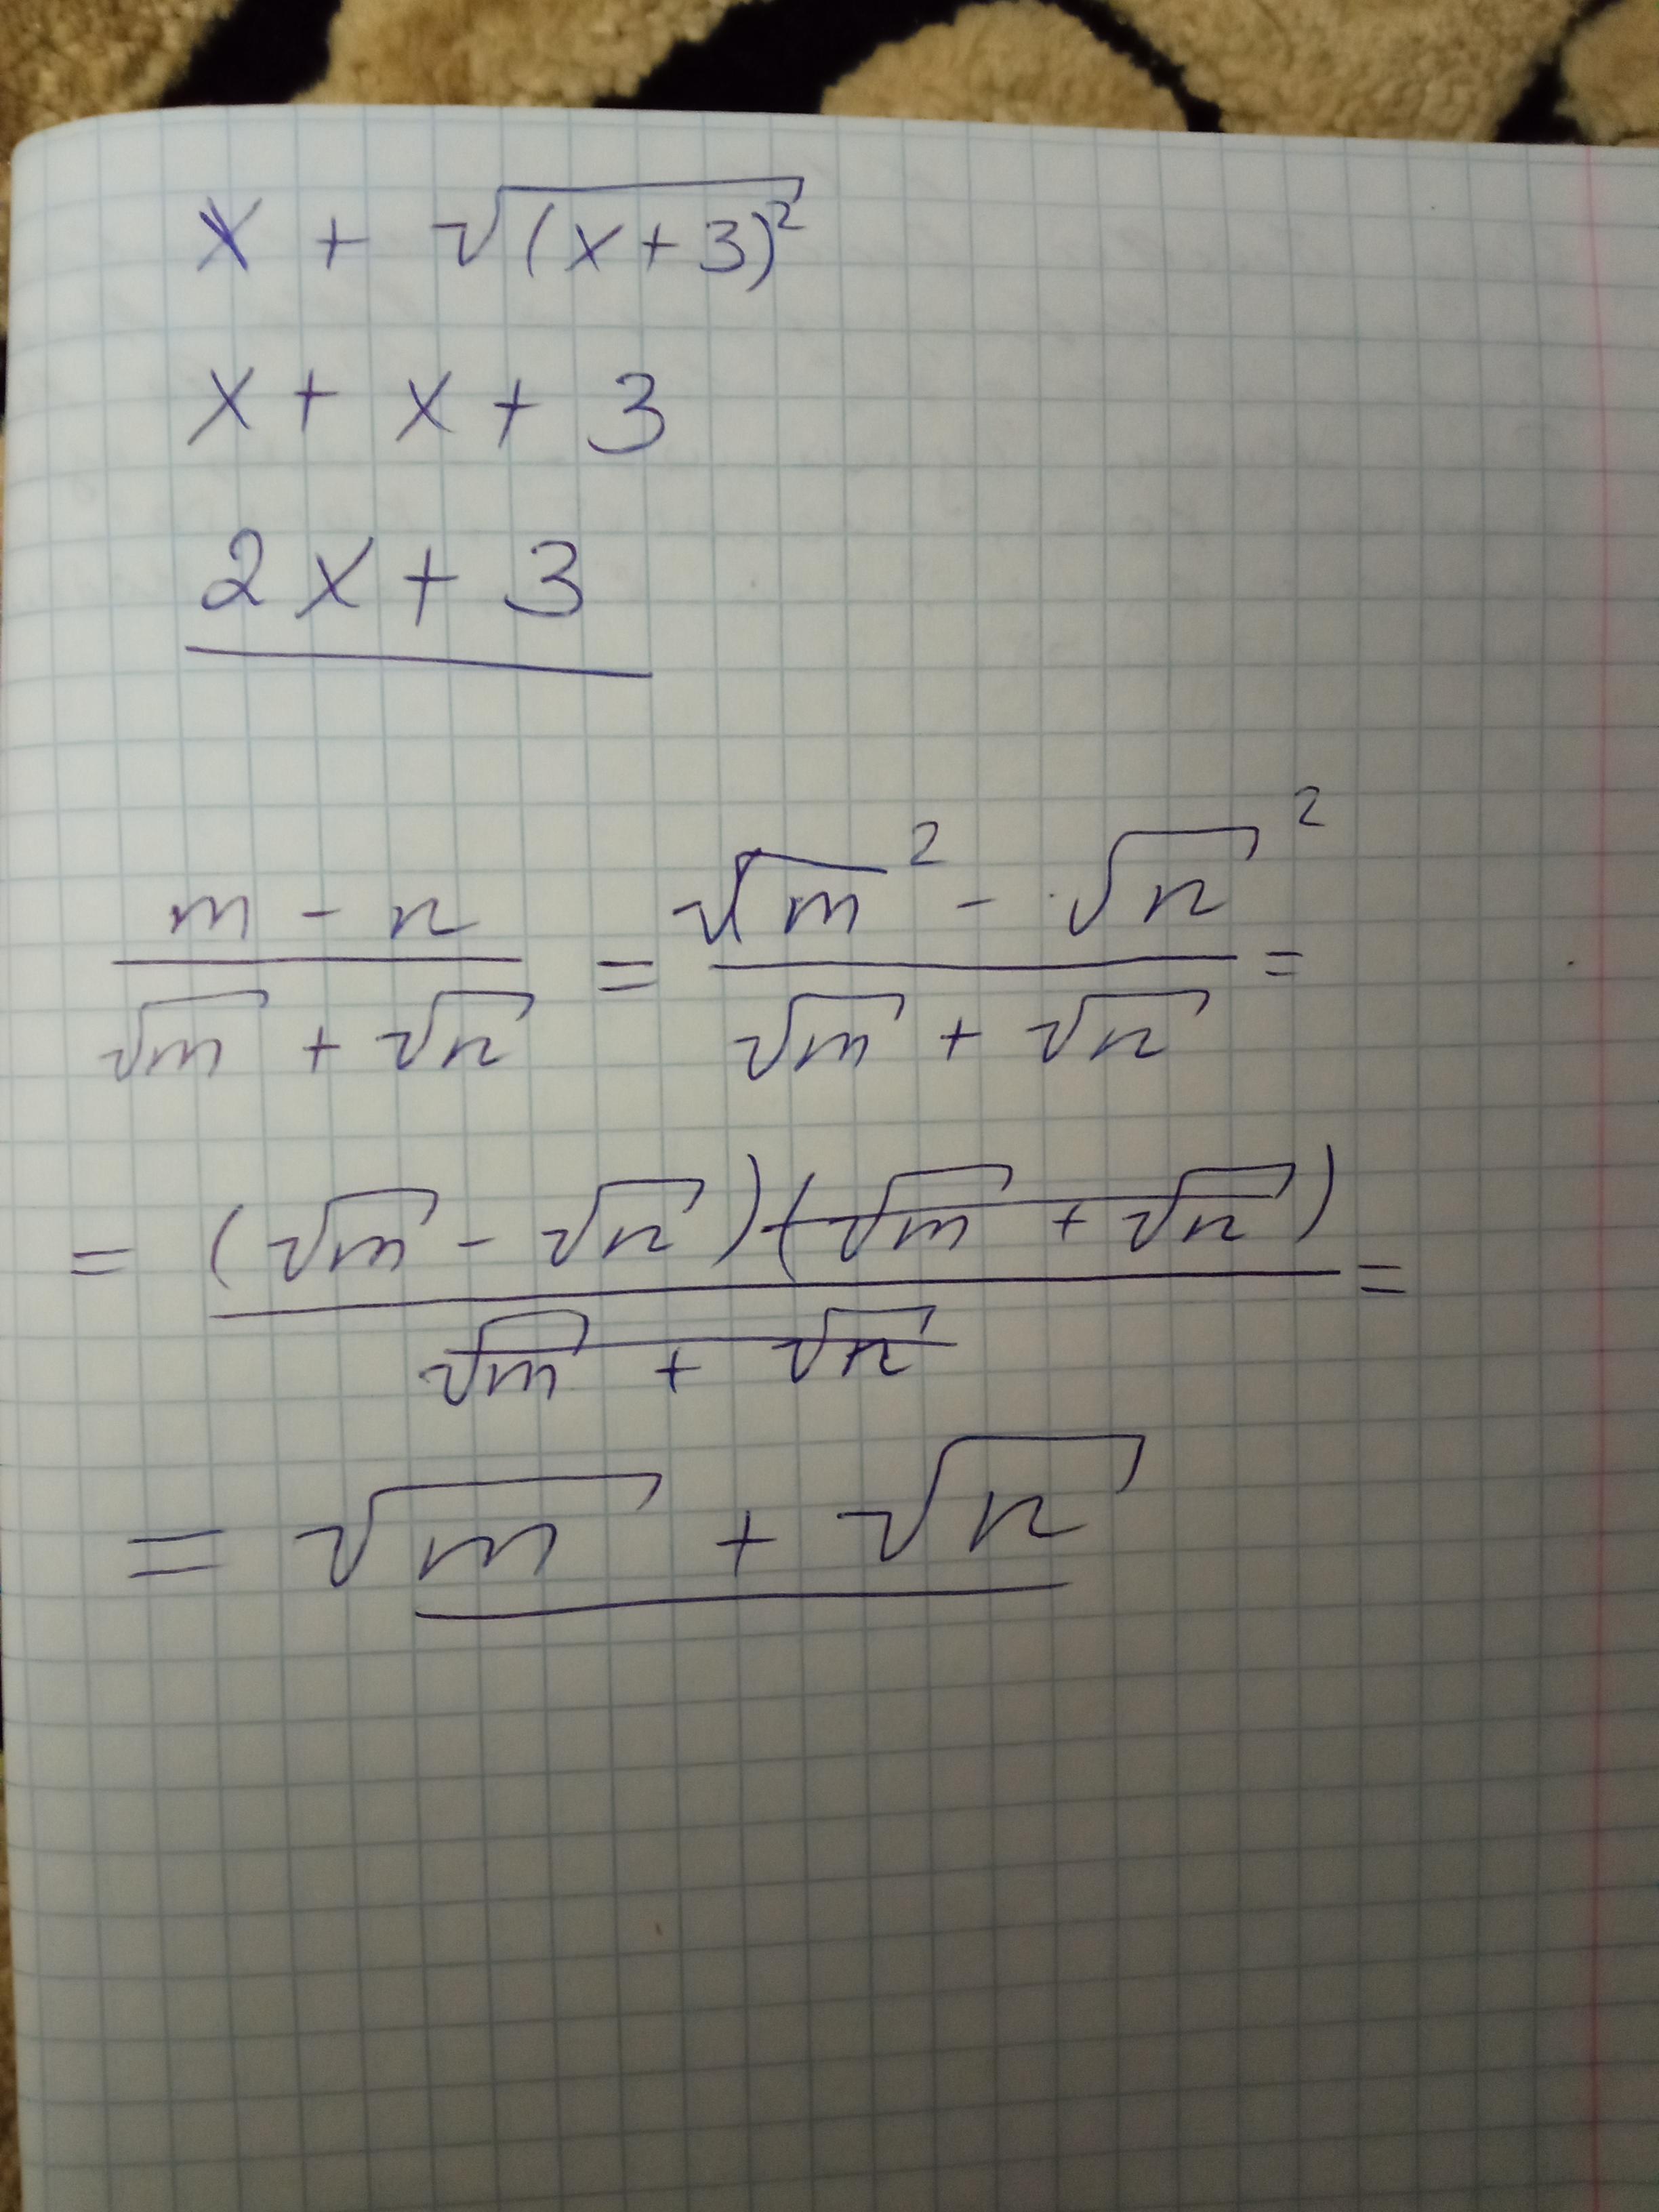 x + √(x+3)²
x + x + 3
2x + 3
m - n / √m + √n = √m² - √n² / √m + √n =
= (√m - √n)(√m + √n) / √m + √n =
= √m + √n